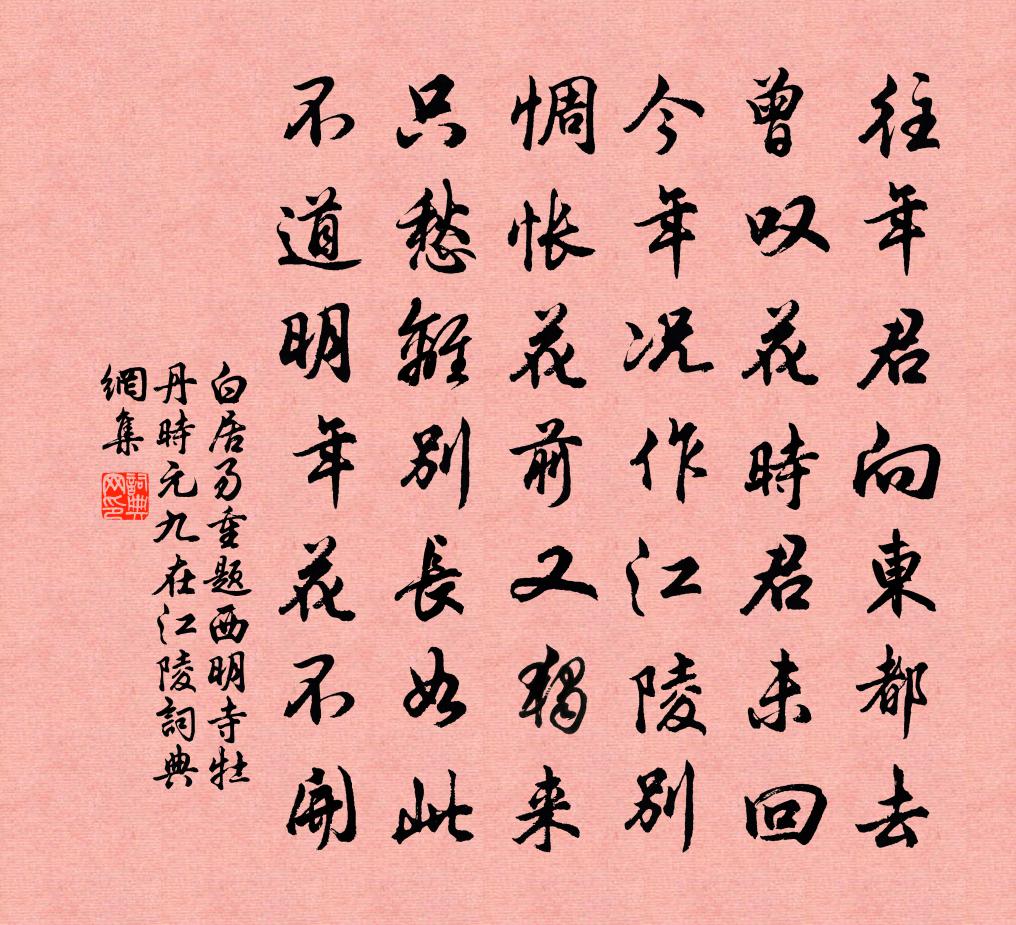 往年君向東都去
曾叹花時君未回
今年况作江陵別
惆怅花前又獨来
只愁離別長如此
不道明年花不開
白居易重题西明寺牡
丹時元九在江陵詞典
網集
詞典网印